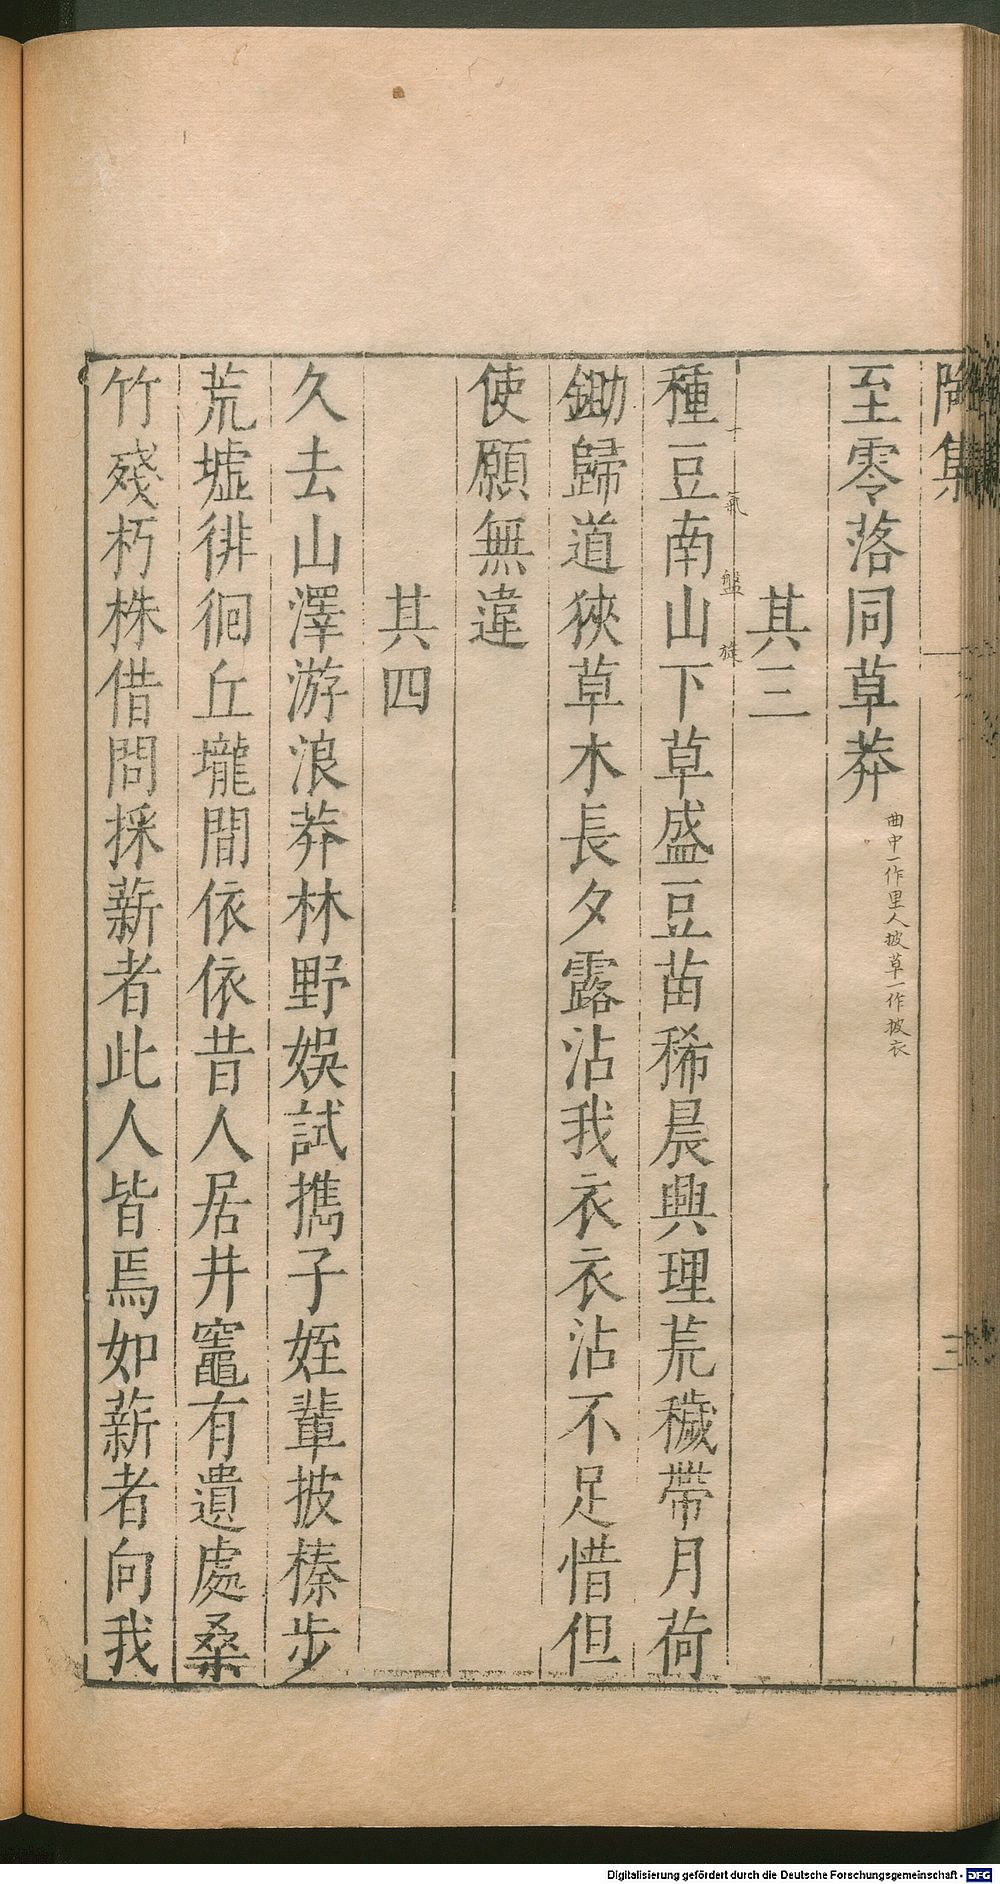 陶集
三
至零落同草莽
曲中一作里人披草一作披衣
其三
氣
盤
旋
種豆南山下草盛豆苗稀晨興理荒穢帶月荷
鋤歸道狹草木長夕露沾我衣衣沾不足惜但
使願無違
其四
久去山澤游浪莽林野娛試攜子姪輩披榛步
荒墟徘徊丘壠間依依昔人居井竈有遺處桑
竹殘朽株借問採薪者此人皆焉如薪者向我
Digitalisierung gefördert durch die Deutsche Forschungsgemeinschaft - DFG